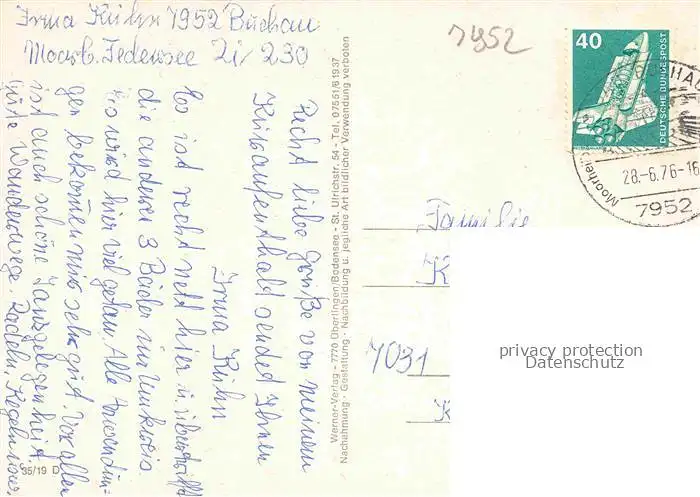 Irma Kühn 7952 Buchau
Moorb. Federsee Zi 230
7952
40
DEUTSCHE BUNDESPOST
28.-6.76-16
7952
Recht liebe Grüße von meinem
Kuraufenthalt sendet Ihnen
Irma Kühn
Es ist recht nett hier u. übertrifft
die anderen 3 Bäder im Umkreis
Es wird hier viel getan. Alle Anwendun-
gen bekommen mir sehr gut. Vor allem
ist auch schöne Tanzgelegenheit
gute Wanderwege. Radeln, Kegeln usw.
35/19 D
Werner-Verlag - 7770 Überlingen/Bodensee - St. Ulrichstr. 54 - Tel. 07551/61937
Nachahmung - Gestaltung - Nachbildung u. jegliche Art bildlicher Verwendung verboten
Familie
K
7031
K
privacy protection
Datenschutz